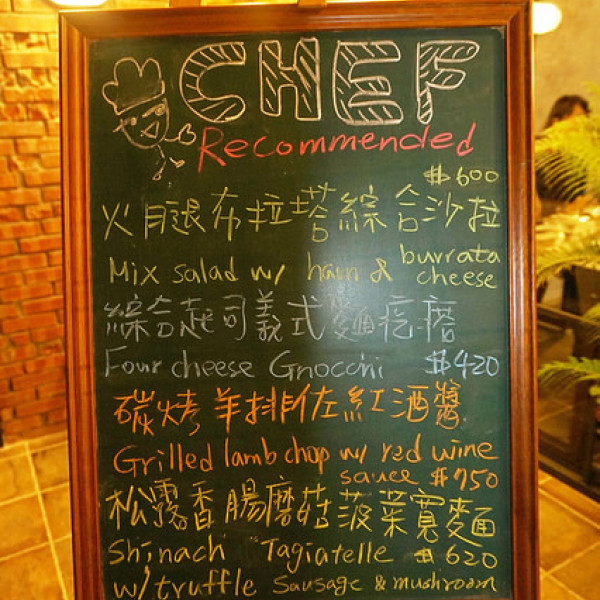 CHEF
Recommended
$600
火腿布拉塔綜合沙拉
Mix salad w/ ham & burrata cheese
綜合起司義式麵疙瘩
Four cheese Gnocchi $420
碳烤羊排佐紅酒醬
Grilled lamb chop w/ red wine
sauce $750
松露香腸磨菇菠菜寬麵
Shinach "Tagiatelle $620
w/ truffle Sausage & mushroom